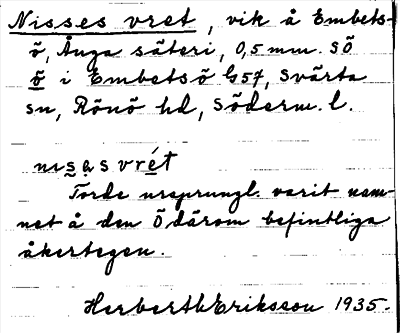 Nisses vret, vik å Embets-
ö, Ånga säteri, 0,5 mm. SÖ
Ö i Embetsö G57, Svärta
sn, Rönö hd, Söderm. l.
nisəs vrét
Torde ursprungl. varit nam-
net å den Ö därom befintliga
åkertegen.
Herbert Eriksson 1935.